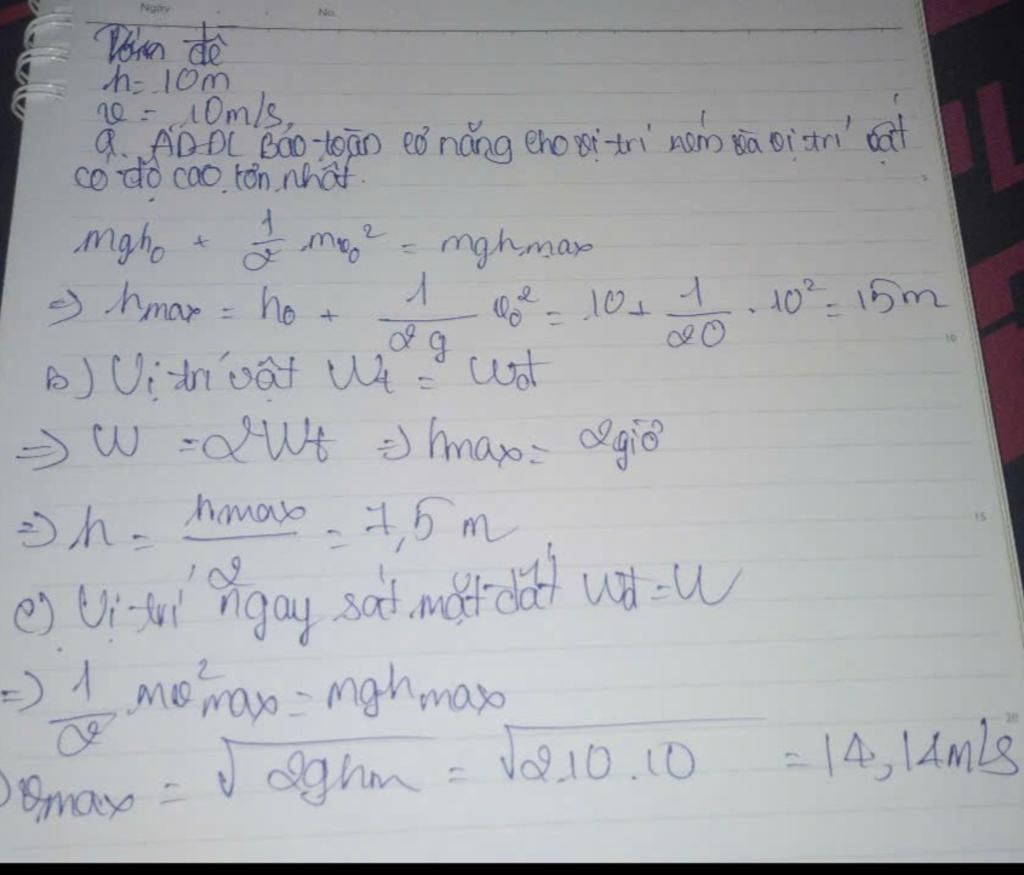 Ngày No.
đề
h = 10m
v = 10m/s,
a. ADĐL Bảo toàn cơ năng cho vị trí ném và vị trí vật
có độ cao lớn nhất.
mgh₀ + 1/2 mv₀² = mghmax
=> hmax = h₀ + 1/2g v₀² = 10 + 1/20 . 10² = 15m
b) Vị trí vật Wt = Wđ
=> W = 2Wt => hmax =
=> h = hmax/2 = 7,5 m
c) Vị trí ngay sát mặt đất Wđ = W
=> 1/2 mv²max = mghmax
vmax = √2ghm = √2.10.10 = 14,14m/s
10
15
20